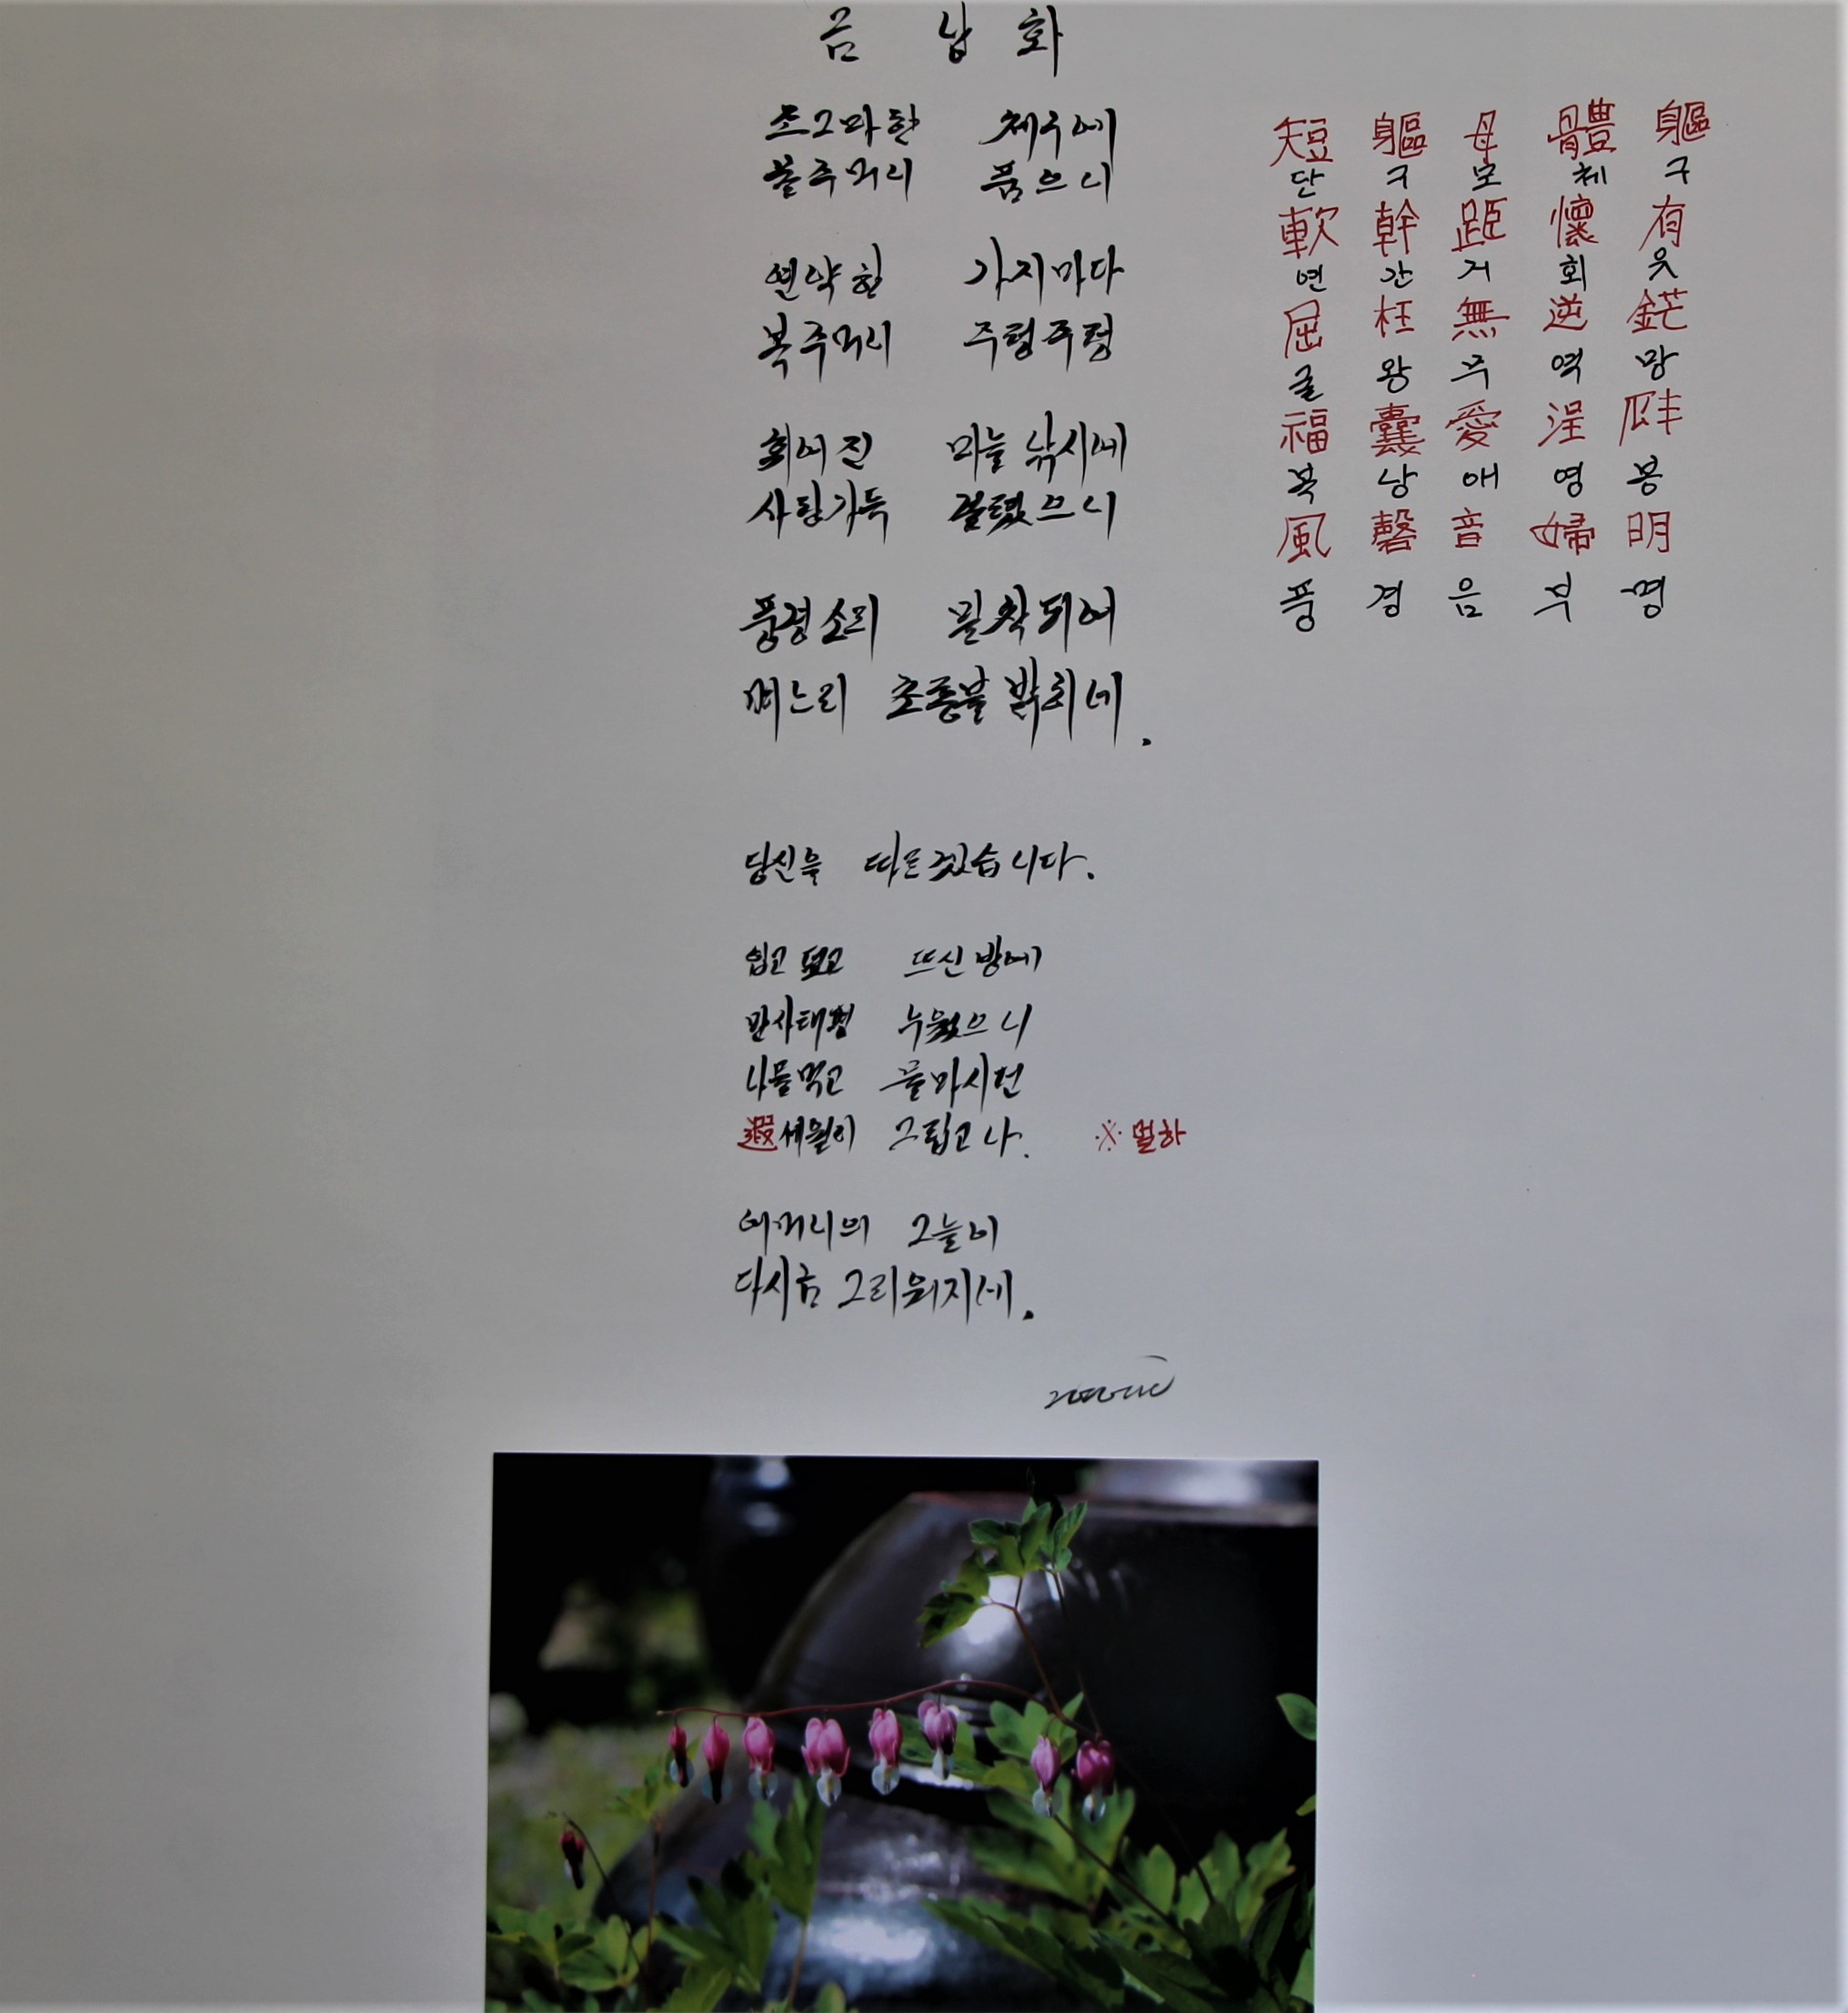 금 낭 화
조그마한 체구에
불주머리 품으니
연약한 가지마다
복주머니 주렁주렁
휘어진 미늘 낚시에
사랑가득 걸렸으니
풍경소리 밀착되어
며느리 초롱불 밝히네.
당신을 따르겠습니다.
입고 덮고 뜨신방에
만사태평 누웠으니
나물먹고 물마시던
遐세월이 그립고나. ※멀하
어머니의 그늘이
다시금 그리워지네.
短 軀 母 體 軀
단 구 모 체 구
軟 幹 距 懷 有
연 간 거 회 유
屈 枉 無 逆 鋩
굴 왕 무 역 망
福 囊 愛 逞
복 낭 애 영 봉
風 磬 音 婦 明
풍 경 음 부 명